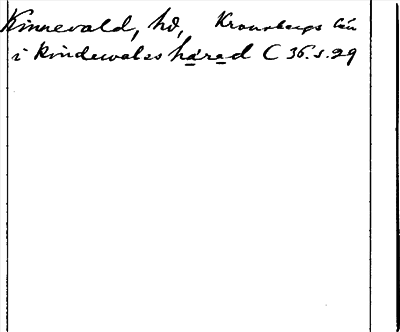 Kinnevald, hd, Kronobergs län
i kindewales härad C 36. s. 29